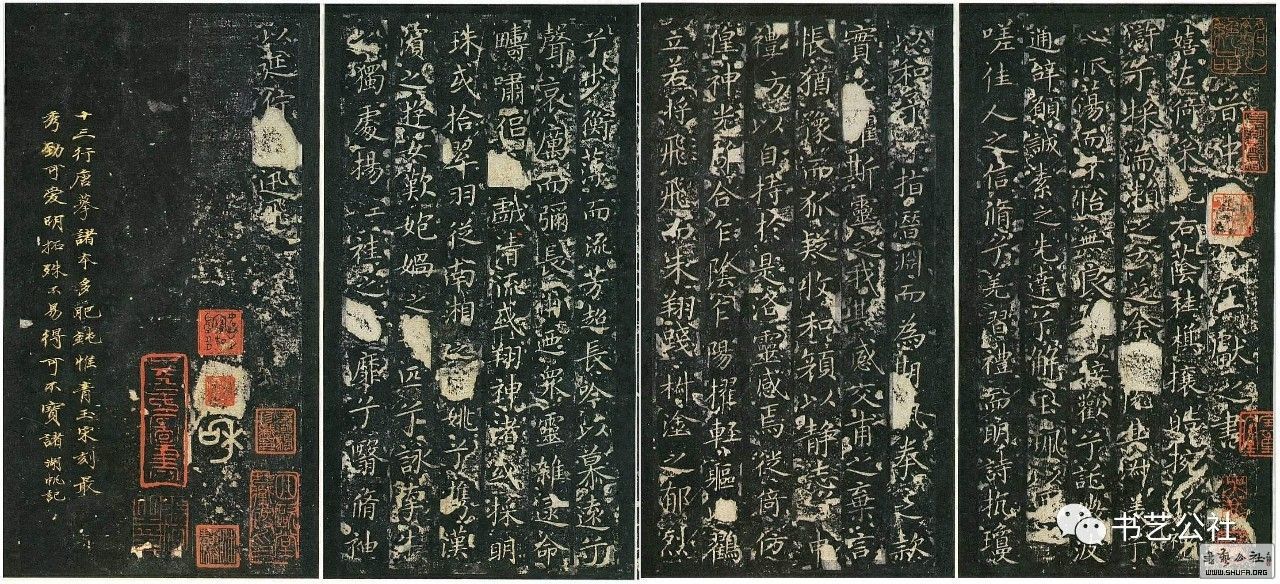 王獻之書
嬉左倚采旄右蔭桂旗攘皓捥
滸兮採湍瀨之玄芝余情其淑美兮
心振蕩而不怡無良接歡兮託微波
通辭願誠素之先達兮解玉珮以
嗟佳人之信脩兮羌習禮而明詩抗瓊
以和予兮指潛淵而為期執拳之款
實懼斯靈之我欺感交甫之棄言
悵猶豫而狐疑收和顏以靜志兮申
禮防以自持於是洛靈感焉徙倚仿
偟神光離合乍陰乍陽擢輕軀以鶴
立若將飛而未翔踐椒塗之郁烈
步蘅薄而流芳超長吟以慕遠兮
聲哀厲而彌長爾迺眾靈雜遝命
疇嘯侶或戲清流或翔神渚或採明
珠或拾翠羽從南湘之二姚兮攜漢
濱之遊女歎匏媧之無匹兮詠牽牛
之獨處揚輕袿之猗靡兮翳脩袖
以延佇迅飛
十三行唐摹諸本多肥鈍惟青玉宋刻最
秀勁可愛明拓殊不易得可不寶諸湖帆記
书艺公社
書藝公社
WWW.SHUFA.ORG